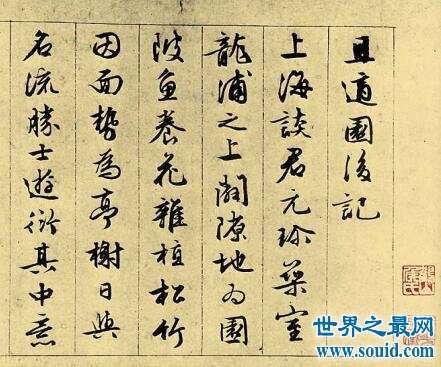 且適園後記
上海談君元珍築室
龍浦之上闢隙地为園
陂魚養花雜植松竹
因面勢為亭榭日與
名流勝士遊衍其中意
世界之最网
www.souid.com